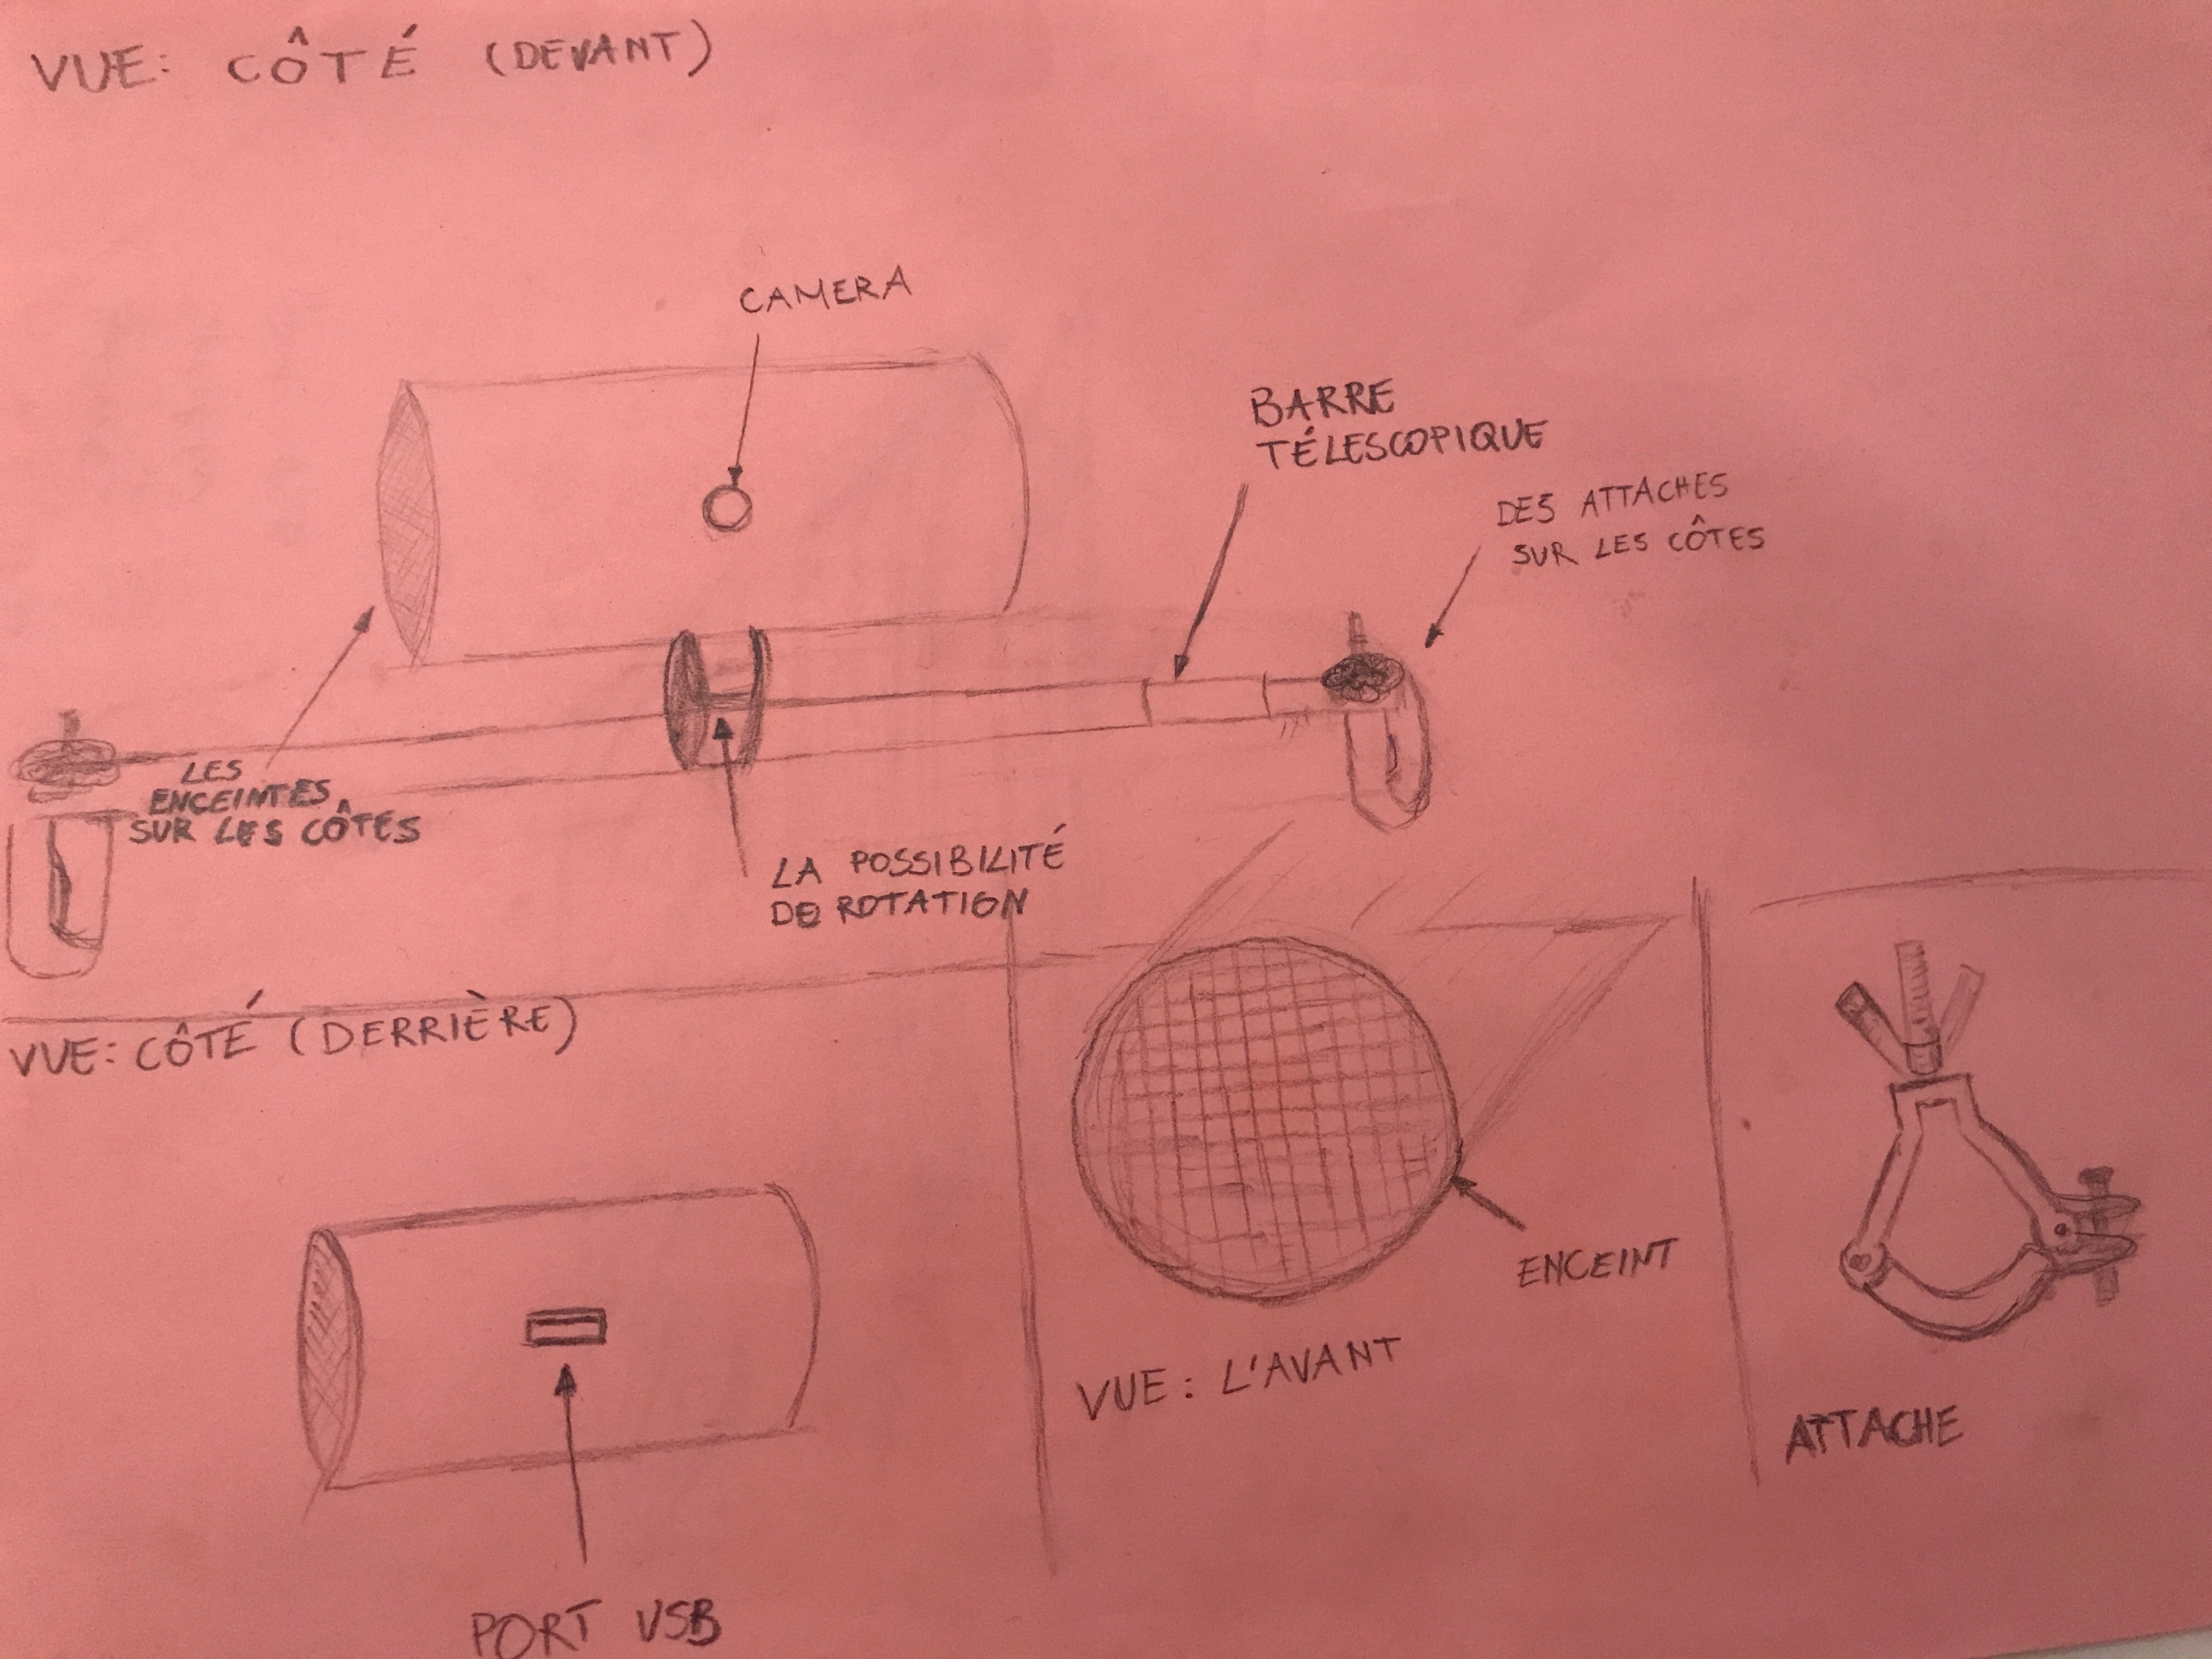 VUE: CÔTÉ (DEVANT)
CAMERA
BARRE
TÉLESCOPIQUE
DES ATTACHES
SUR LES CÔTES
LES
ENCEINTES
SUR LES CÔTES
LA POSSIBILITÉ
DE ROTATION
VUE: CÔTÉ (DERRIÈRE)
PORT USB
ENCEINT
VUE: L'AVANT
ATTACHE